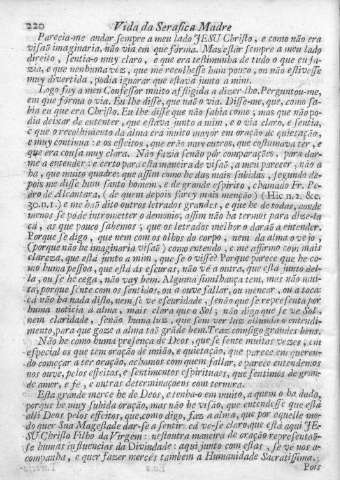 220 Vida da Serafica Madre
Parecia-me andar sempre a meu lado JESU Christo, e como não era
visaõ imaginaria, não via em que fórma. Mas estar sempre a meu lado
direito, sentia-o muy claro, e que era testimunha de tudo o que eu fa-
zia, e que nenhuma vez, que me recolhesse hum pouco, ou não estivesse
muy divertida, podia ignorar que estava junto a mim.
Logo fuy a meu Confessor muito affligida a dizer-lho. Perguntou-me,
em que fórma o via. Eu lhe disse, que naõ o via. Disse-me, que, como sa-
bia eu que era Christo. Eu lhe disse que não sabia como, mas que não po-
dia deixar de entender, que estava junto a mim, e o via claro, e sentia,
e que o recolhimento da alma era muito mayor em oração de quietação,
e muy continua: e os effeitos, que eraõ muy outros, que costumava ter, e
que era cousa muy clara. Não fazia senão pôr comparações, para dar-
me a entender: e certo para esta maneira de visaõ, a meu parecer, não a
ha, que muito quadre: que assim como he das mais subidas, segundo de-
pois me disse hum santo homem, e de grande espirito, chamado Fr. Pe-
dro de Alcantara, ( de quem depois farey mais menção) (Hic n.2. &c.
30.n.1.) e me haõ dito outros letrados grandes, e que he de todas, onde
menos se póde intrometter o demonio, assim não ha termos para dize-la
cá, as que pouco sabemos, que os letrados melhor o daraõ a entender.
Porque se digo, que nem com os olhos do corpo, nem da alma o vejo,
(porque não he imaginaria visaõ) como entendo, e me affirmo com mais
clareza, que está junto a mim, que se o visse? Porque parece que he co-
mo huma pessoa, que está ás escuras, não vê a outra, que está junto del-
la, ou se he cega, não vay bem. Alguma semelhança tem, mas não mui-
ta, porque sente com os sentidos, ou a ouve fallar, ou menear, ou a toca:
cá não ha nada disto, nem se vê escuridade, senão que se representa por
huma noticia á alma, mais clara que o Sol; não digo que se ve Sol,
nem claridade, senão huma luz, que sem ver luz illumina o entendi-
mento, para que goze a alma taõ grãde bem. Traz comsigo grandes bens.
Não he como huma presença de Deos, que se sente muitas vezes, em
especial os que tem oração de união, e quietação, que parece em queren-
do começar a ter oração, achamos com quem fallar, e parece entendemos
nos ouve, pelos effeitos, e sentimentos espirituaes, que sentimos de gran-
de amor, e fé, e outras determinaçoens com ternura.
Esta grande merce he de Deos, e tenha-o em muito, a quem o ha dado,
porque he muy subida oração, mas não he visaõ, que entende-se que está
alli Deos pelos effeitos, que, como digo, faz a alma, que por aquelle mo-
do quer Sua Magestade dar-se a sentir: cá ve-se claro, que está aqui JE-
SU Christo Filho da Virgem: nestoutra maneira de oração representaõ-
se humas influencias da Divindade: aqui junto com estas, se vê nos a-
companha, e quer fazer mercês tambem a Humanidade Sacratissima.
Pois